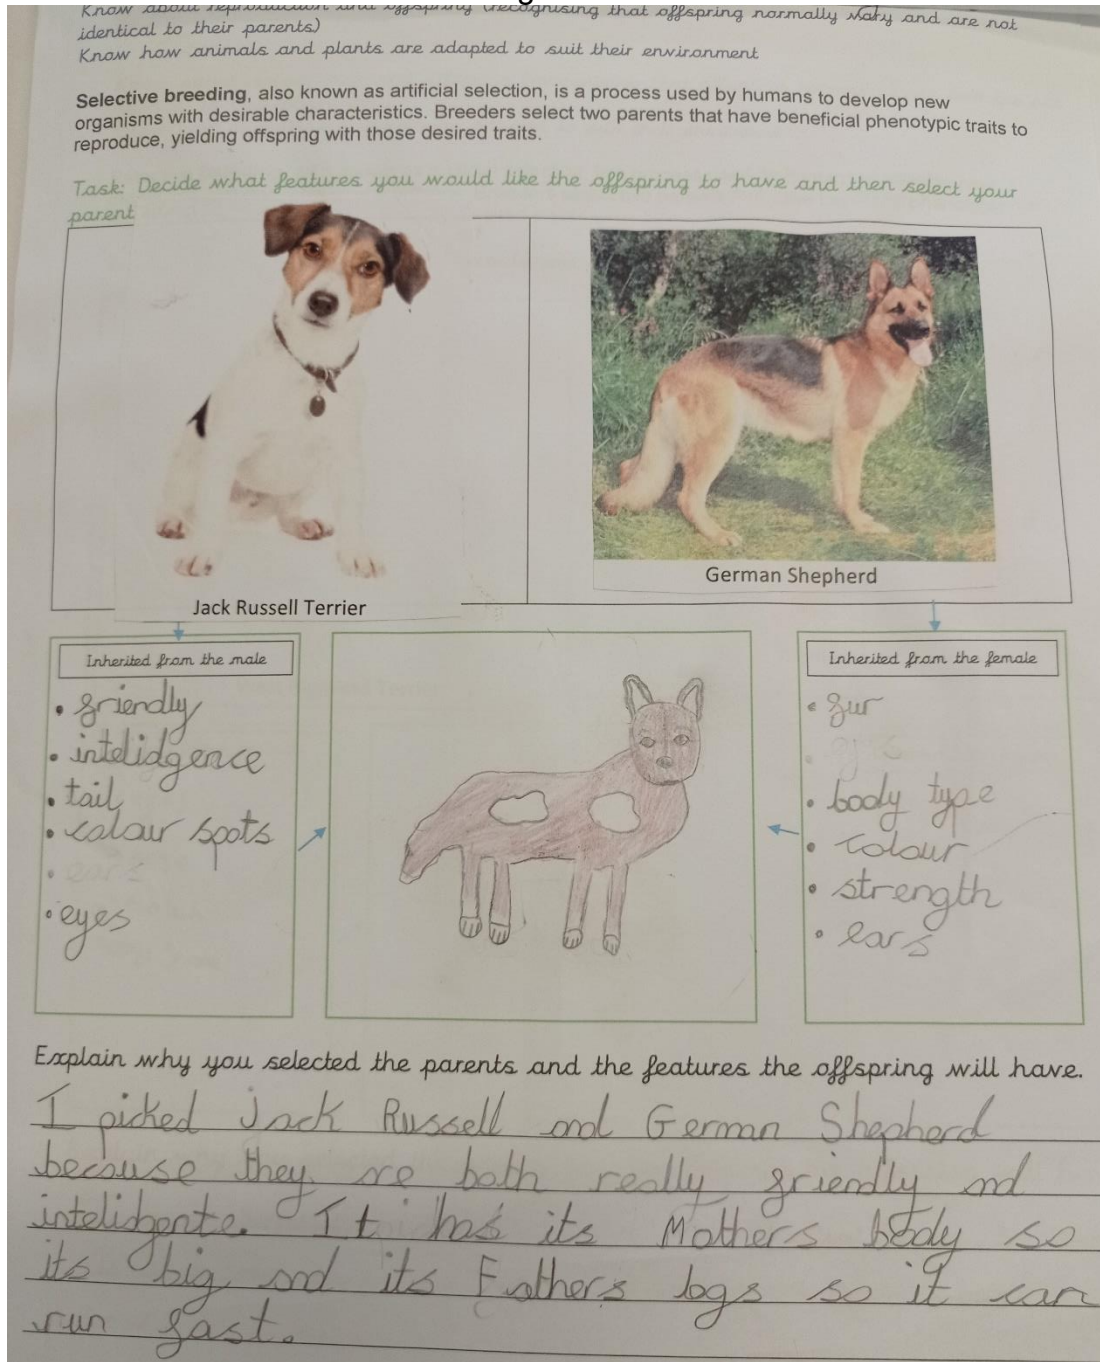 Know about reproduction and offspring (recognising that offspring normally vary and are not
identical to their parents)
Know how animals and plants are adapted to suit their environment
Selective breeding, also known as artificial selection, is a process used by humans to develop new
organisms with desirable characteristics. Breeders select two parents that have beneficial phenotypic traits to
reproduce, yielding offspring with those desired traits.
Task: Decide what features you would like the offspring to have and then select your
parent
German Shepherd
Jack Russell Terrier
Inherited from the male
• friendly
• intelidgence
• tail
• colour spots
• ears
• eyes
Inherited from the female
• fur
• body type
• colour
• strength
• ears
Explain why you selected the parents and the features the offspring will have.
I picked Jack Russell and German Shepherd
because they are both really friendly and
intelidgente. It has its Mothers body so
its big and its Fathers legs so it can
run fast.